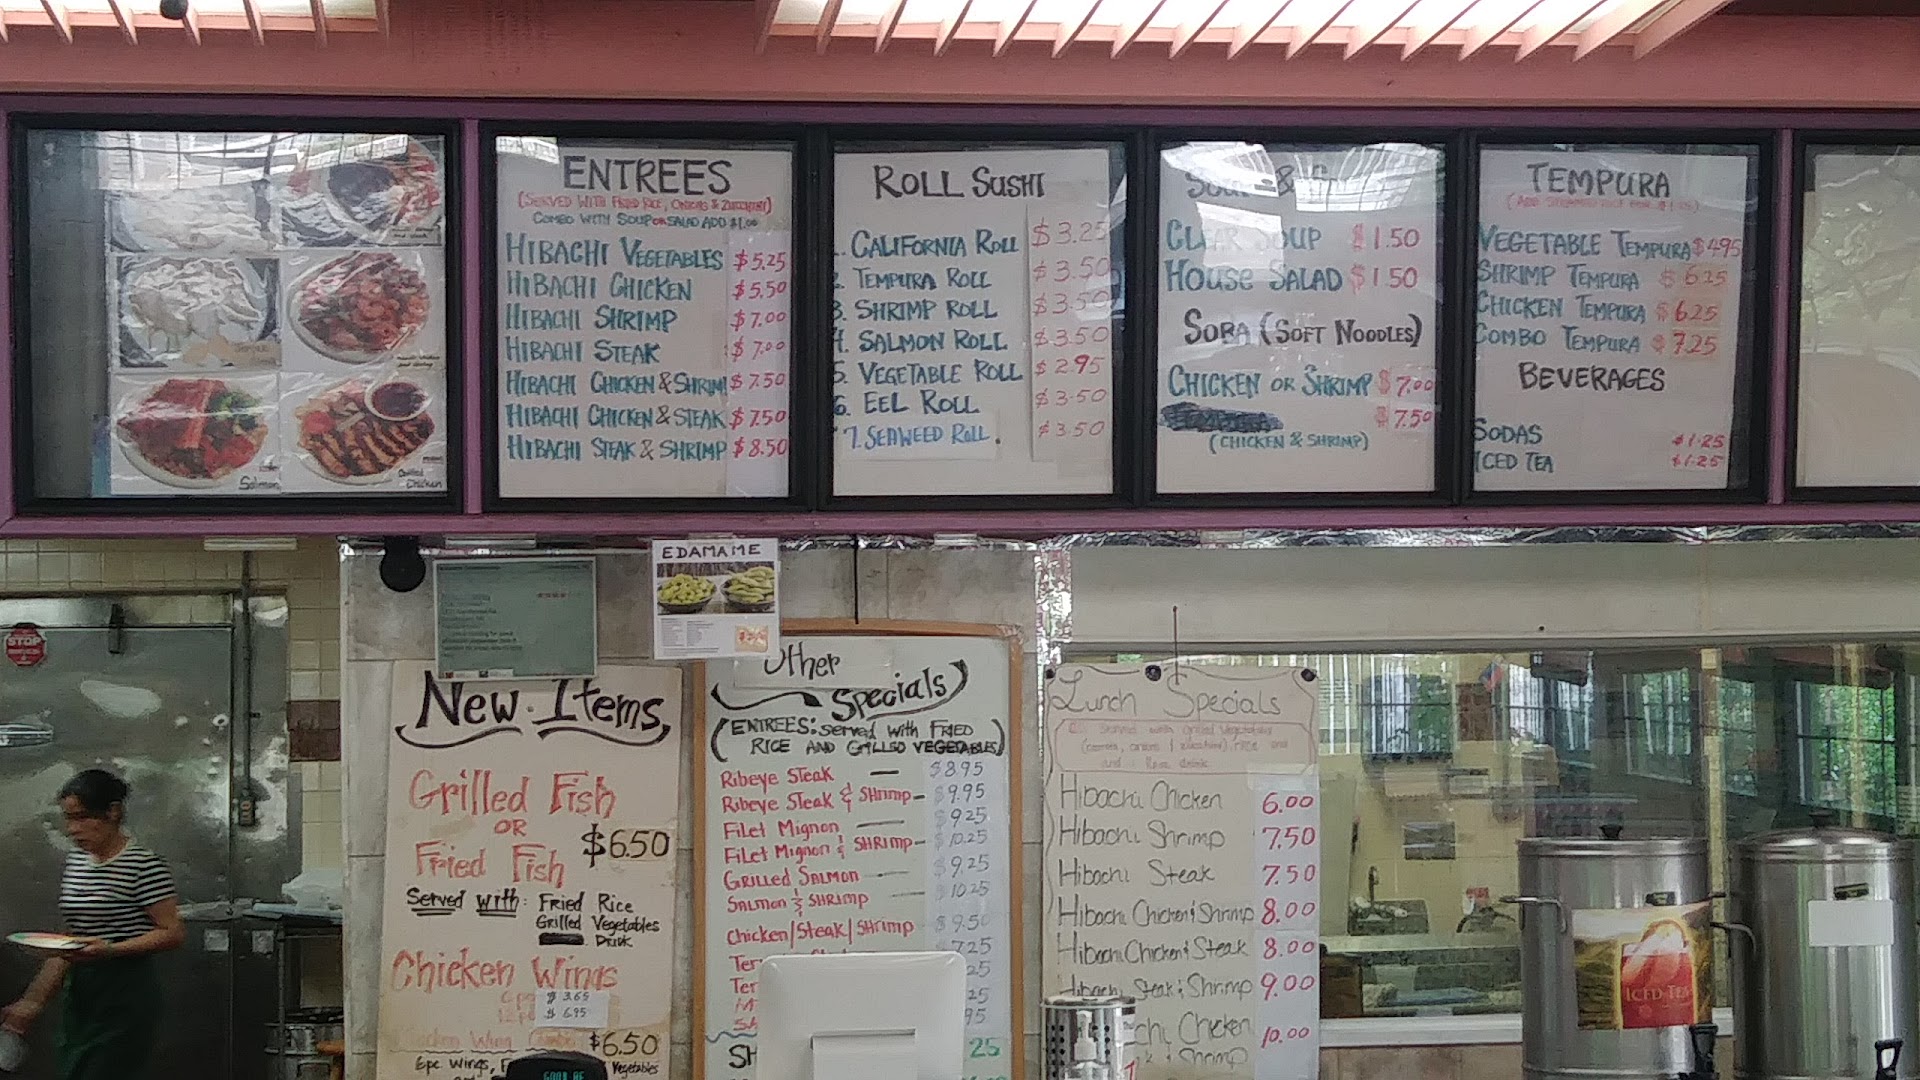 Salmon
Grilled
Chicken
ENTREES
(SERVED WITH FRIED RICE, ONIONS & ZUCCHINI)
COMBO WITH SOUP OR SALAD ADD $1.00
HIBACHI VEGETABLES $5.25
HIBACHI CHICKEN $5.50
HIBACHI SHRIMP $7.00
HIBACHI STEAK $7.00
HIBACHI CHICKEN & SHRIM $7.50
HIBACHI CHICKEN & STEAK $7.50
HIBACHI STEAK & SHRIMP $8.50
ROLL SUSHI
CALIFORNIA ROLL $3.25
2. TEMPURA ROLL $3.50
3. SHRIMP ROLL $3.50
4. SALMON ROLL $3.50
5. VEGETABLE ROLL $2.95
6. EEL ROLL $3.50
7. SEAWEED ROLL. $3.50
&
CLEAR SOUP $1.50
HOUSE SALAD $1.50
SOBA (SOFT NOODLES)
CHICKEN OR SHRIMP $7.00
$7.50
(CHICKEN & SHRIMP)
TEMPURA
(ADD STEAMED RICE FOR
VEGETABLE TEMPURA $4.95
SHRIMP TEMPURA $6.25
CHICKEN TEMPURA $6.25
COMBO TEMPURA $7.25
BEVERAGES
SODAS $1.25
ICED TEA $1.25
STOP
EDAMAME
New Items
Grilled Fish
OR
Fried Fish
$6.50
Served with: Fried Rice
Grilled Vegetables
Drink
Chicken Wings
$3.65
$6.95
Chicken Wing Combo $6.50
6pc wings, Vegetables
Other
Specials
(ENTREES: Served with FRIED
RICE AND GRILLED VEGETABLES)
Ribeye Steak — $8.95
Ribeye Steak & Shrimp - $9.95
Filet Mignon — $9.25
Filet Mignon & SHRImp - $10.25
GRILLED SALMON — $9.25
SALMON & SHRIMP — 10.25
Chicken/Steak/SHrimp $9.50
Ter 7.25
Ter 25
25
95
SH 25
Lunch Specials
served with Grilled Vegetables
rice and
and
Hibachi Chicken 6.00
Hibachi Shrimp 7.50
Hibachi Steak 7.50
Hibachi Chicken & Shrimp 8.00
Hibachi Chicken & Steak 8.00
Hibachi Steak & Shrimp 9.00
chi Chicken 10.00
& Shrimp
ICED TEA